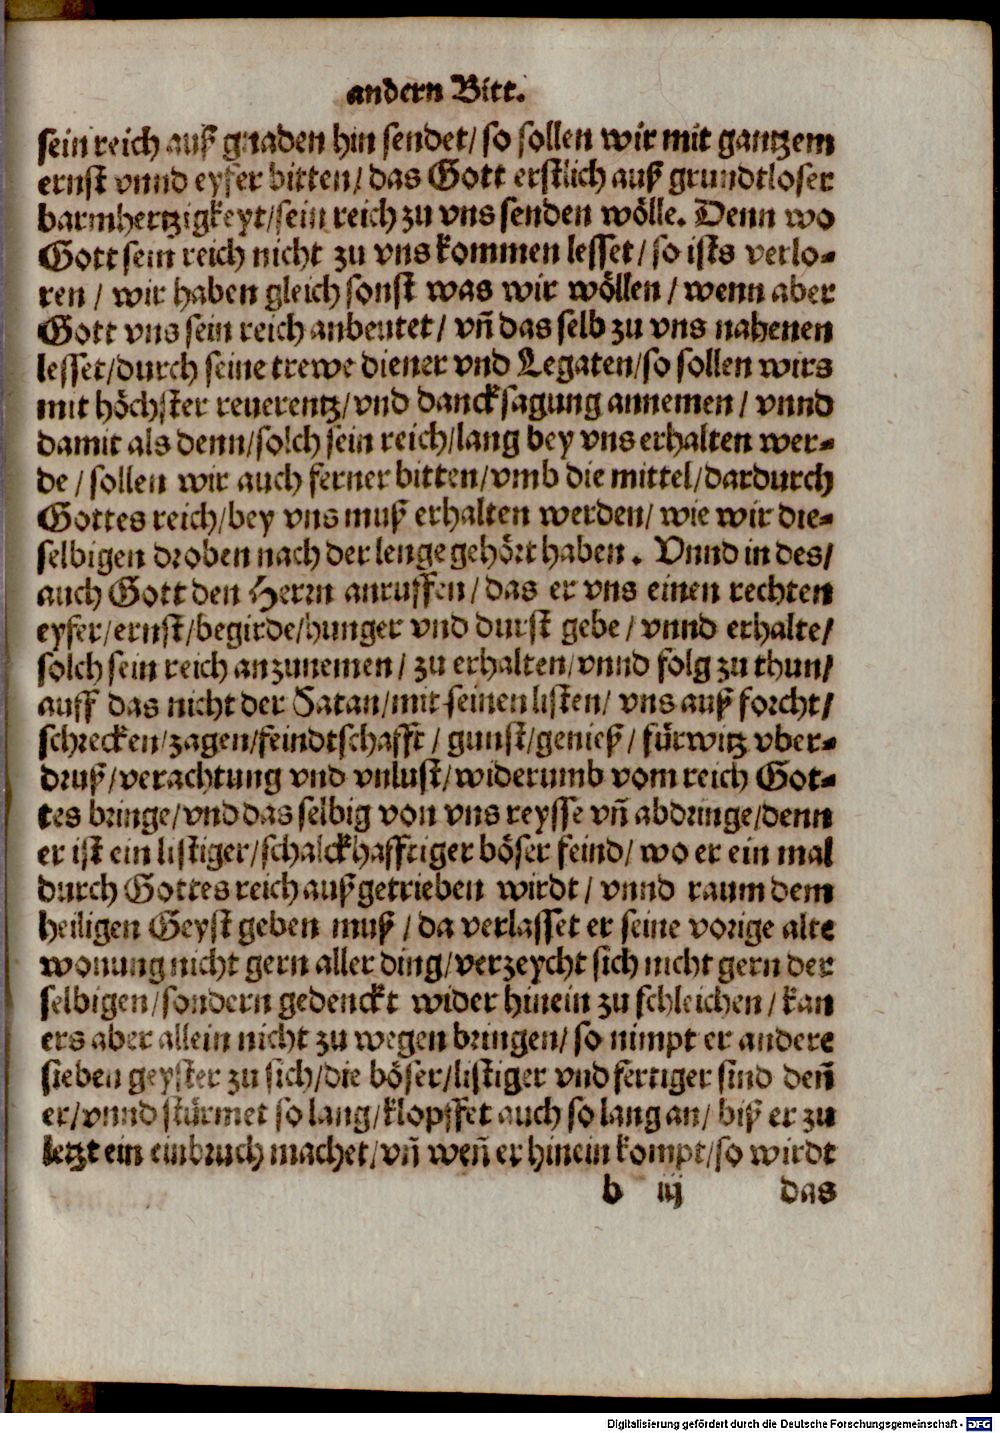 andern Bitt.
sein reich auß gnaden hin sendet/ so sollen wir mit gantzem
ernst vnnd eyfer bitten/ das Gott erstlich auß grundtloser
barmhertzigkeyt/sein reich zu vns senden wölle. Denn wo
Gott sein reich nicht zu vns kommen lesset/ so ists verlo-
ren / wir haben gleich sonst was wir wöllen / wenn aber
Gott vns sein reich anbeutet/ vn̄ das selb zu vns nahenen
lesset/durch seine trewe diener vnd Legaten/so sollen wirs
mit höchster reuerentz/vnd dancksagung annemen / vnnd
damit als denn/solch sein reich/lang bey vns erhalten wer-
de / sollen wir auch ferner bitten/vmb die mittel/dardurch
Gottes reich/bey vns muß erhalten werden/ wie wir die-
selbigen droben nach der lenge gehört haben. Vnnd in des/
auch Gott den Herrn anruffen/ das er vns einen rechten
eyfer/ernst/begirde/hunger vnd durst gebe / vnnd erhalte/
solch sein reich anzunemen / zu erhalten/vnnd folg zu thun/
auff das nicht der Satan/mit seinen listen/ vns auß forcht/
schrecken/zagen/feindtschafft / gunst/genieß / fürwitz vber-
druß/verachtung vnd vnlust/widerumb vom reich Got-
tes bringe/vnd das selbig von vns reysse vn̄ abdringe/denn
er ist ein listiger/schalckhafftiger böser feind/ wo er ein mal
durch Gottes reich außgetrieben wirdt / vnnd raum dem
heiligen Geyst geben muß / da verlasset er seine vorige alte
wonung nicht gern aller ding/verzeycht sich nicht gern der
selbigen/sondern gedenckt wider hinein zu schleichen / kan
ers aber allein nicht zu wegen bringen/ so nimpt er andere
sieben geyster zu sich/die böser/listiger vnd fertiger sind den̄
er/vnnd stürmet so lang/klopffet auch so lang an/ biß er zu
letzt ein einbruch machet/vn̄ wen̄ er hinein kompt/so wirdt
b iij das
Digitalisierung gefördert durch die Deutsche Forschungsgemeinschaft - DFG